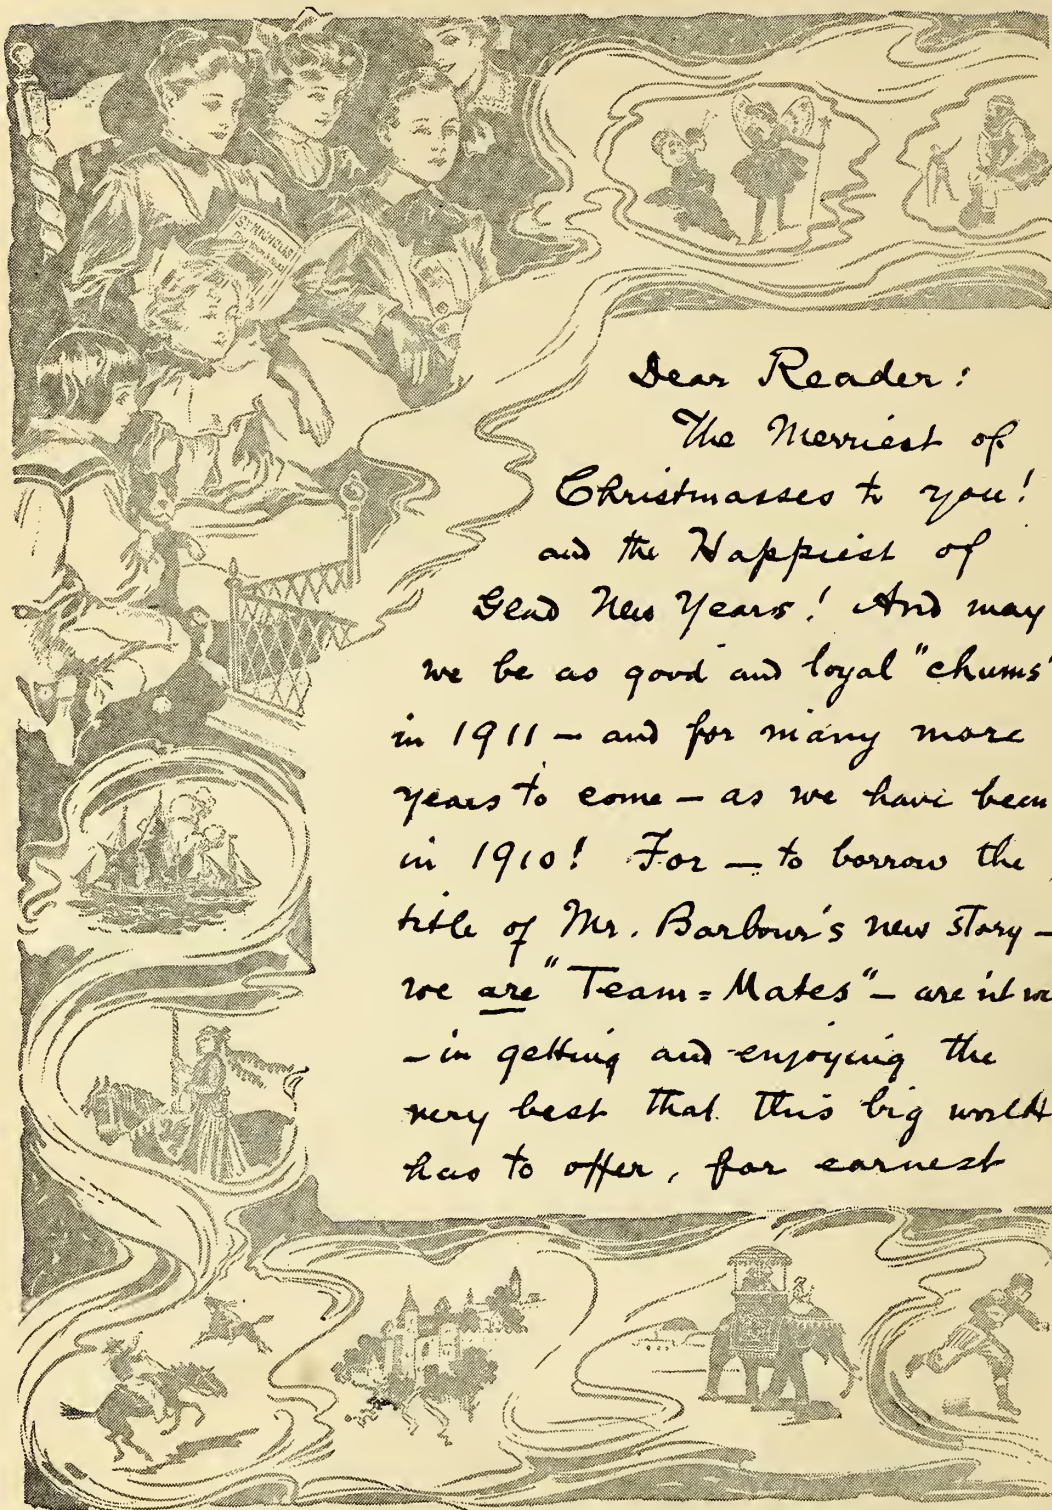 ST NICHOLAS
Dear Reader:
The Merriest of
Christmasses to you!
and the Happiest of
Glad New Years! And may
we be as good and loyal "chums"
in 1911 — and for many more
years to come — as we have been
in 1910! For — to borrow the
title of Mr. Barbour's new story —
we are "Team-Mates" — are n't we
— in getting and enjoying the
very best that this big world
has to offer, for earnest